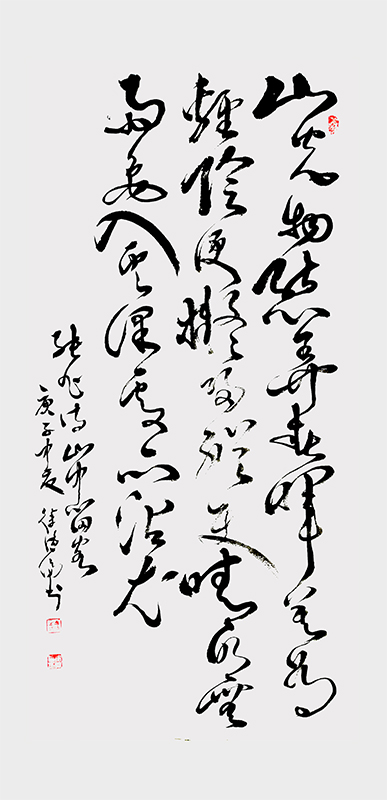 山光物態弄春暉莫為
輕陰便擬歸縱使晴明無
雨色入雲深處亦沾衣
張旭詩山中留客
庚子中夏徐書